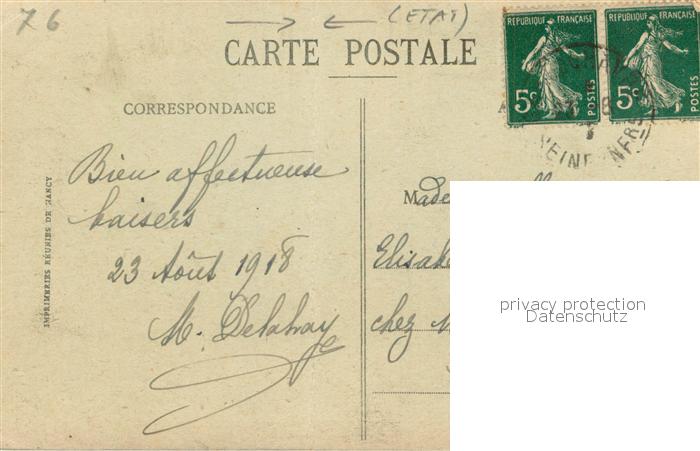 76
(ETAT)
CARTE POSTALE
REPUBLIQUE FRANÇAISE
5c
POSTES
REPUBLIQUE FRANÇAISE
5c
POSTES
CORRESPONDANCE
Bien affectueuse
baisers
23 Août 1918
M. Delahay
IMPRIMERIES RÉUNIES DE NANCY
Made
Elisabe
chez M
privacy protection
Datenschutz